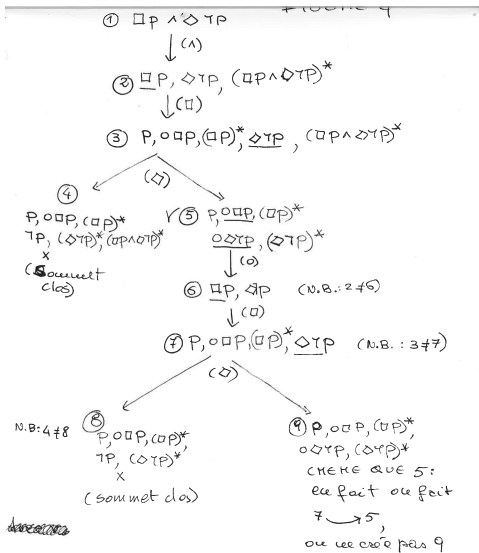 ① □p ∧ ◇¬p
(∧)
② □p, ◇¬p, (□p∧◇¬p)*
(□)
③ p, o□p, (□p)*, ◇¬p, (□p∧◇¬p)*
(◇)
④
p, o□p, (□p)*
¬p, (◇¬p)*, (□p∧◇¬p)*
x
(Sommet
clos)
√⑤ p, o□p, (□p)*
o◇¬p, (◇¬p)*
(o)
⑥ □p, ◇p (N.B.: 2≠6)
(□)
⑦ p, o□p, (□p)*, ◇¬p (N.B.: 3≠7)
(◇)
N.B: 4≠8 ⑧
p, o□p, (□p)*,
¬p, (◇¬p)*,
x
(sommet clos)
⑨ p, o□p, (□p)*,
o◇¬p, (◇¬p)*
(MEME QUE 5:
en fait on fait
7 → 5,
on ne crée pas 9